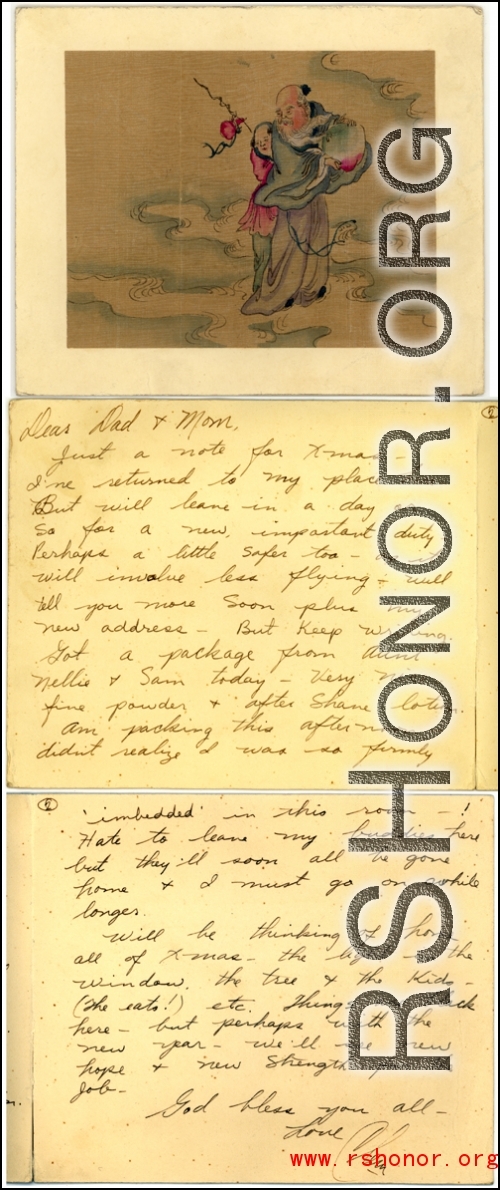 Dear Dad & Mom,
Just a note for Xmas -
I've returned to my place
But will leave in a day
So for a new, important duty
Perhaps a little safer too -
will involve less flying - will
tell you more soon plus my
new address - But keep writing
Got a package from Aunt
Nellie & Sam today - Very
fine powder & after Shave lotion
Am packing this
didn't realize I was so firmly
②
'imbedded' in this room - !
Hate to leave my buddies here
but they'll soon all be gone
home & I must go on while
longer.
Will be thinking of
all of X-mas - the the
window, the tree & the Kids -
(The eats!) etc. Things
here - but perhaps with the
new year - we'll new
hope & new Strength
job -
God bless you all -
Love
RSHONOR.ORG
www.rshonor.org